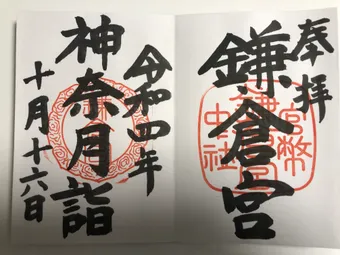 奉拝
鎌倉宮
官幣
中社
令和四年
神奈月詣
十月十六日